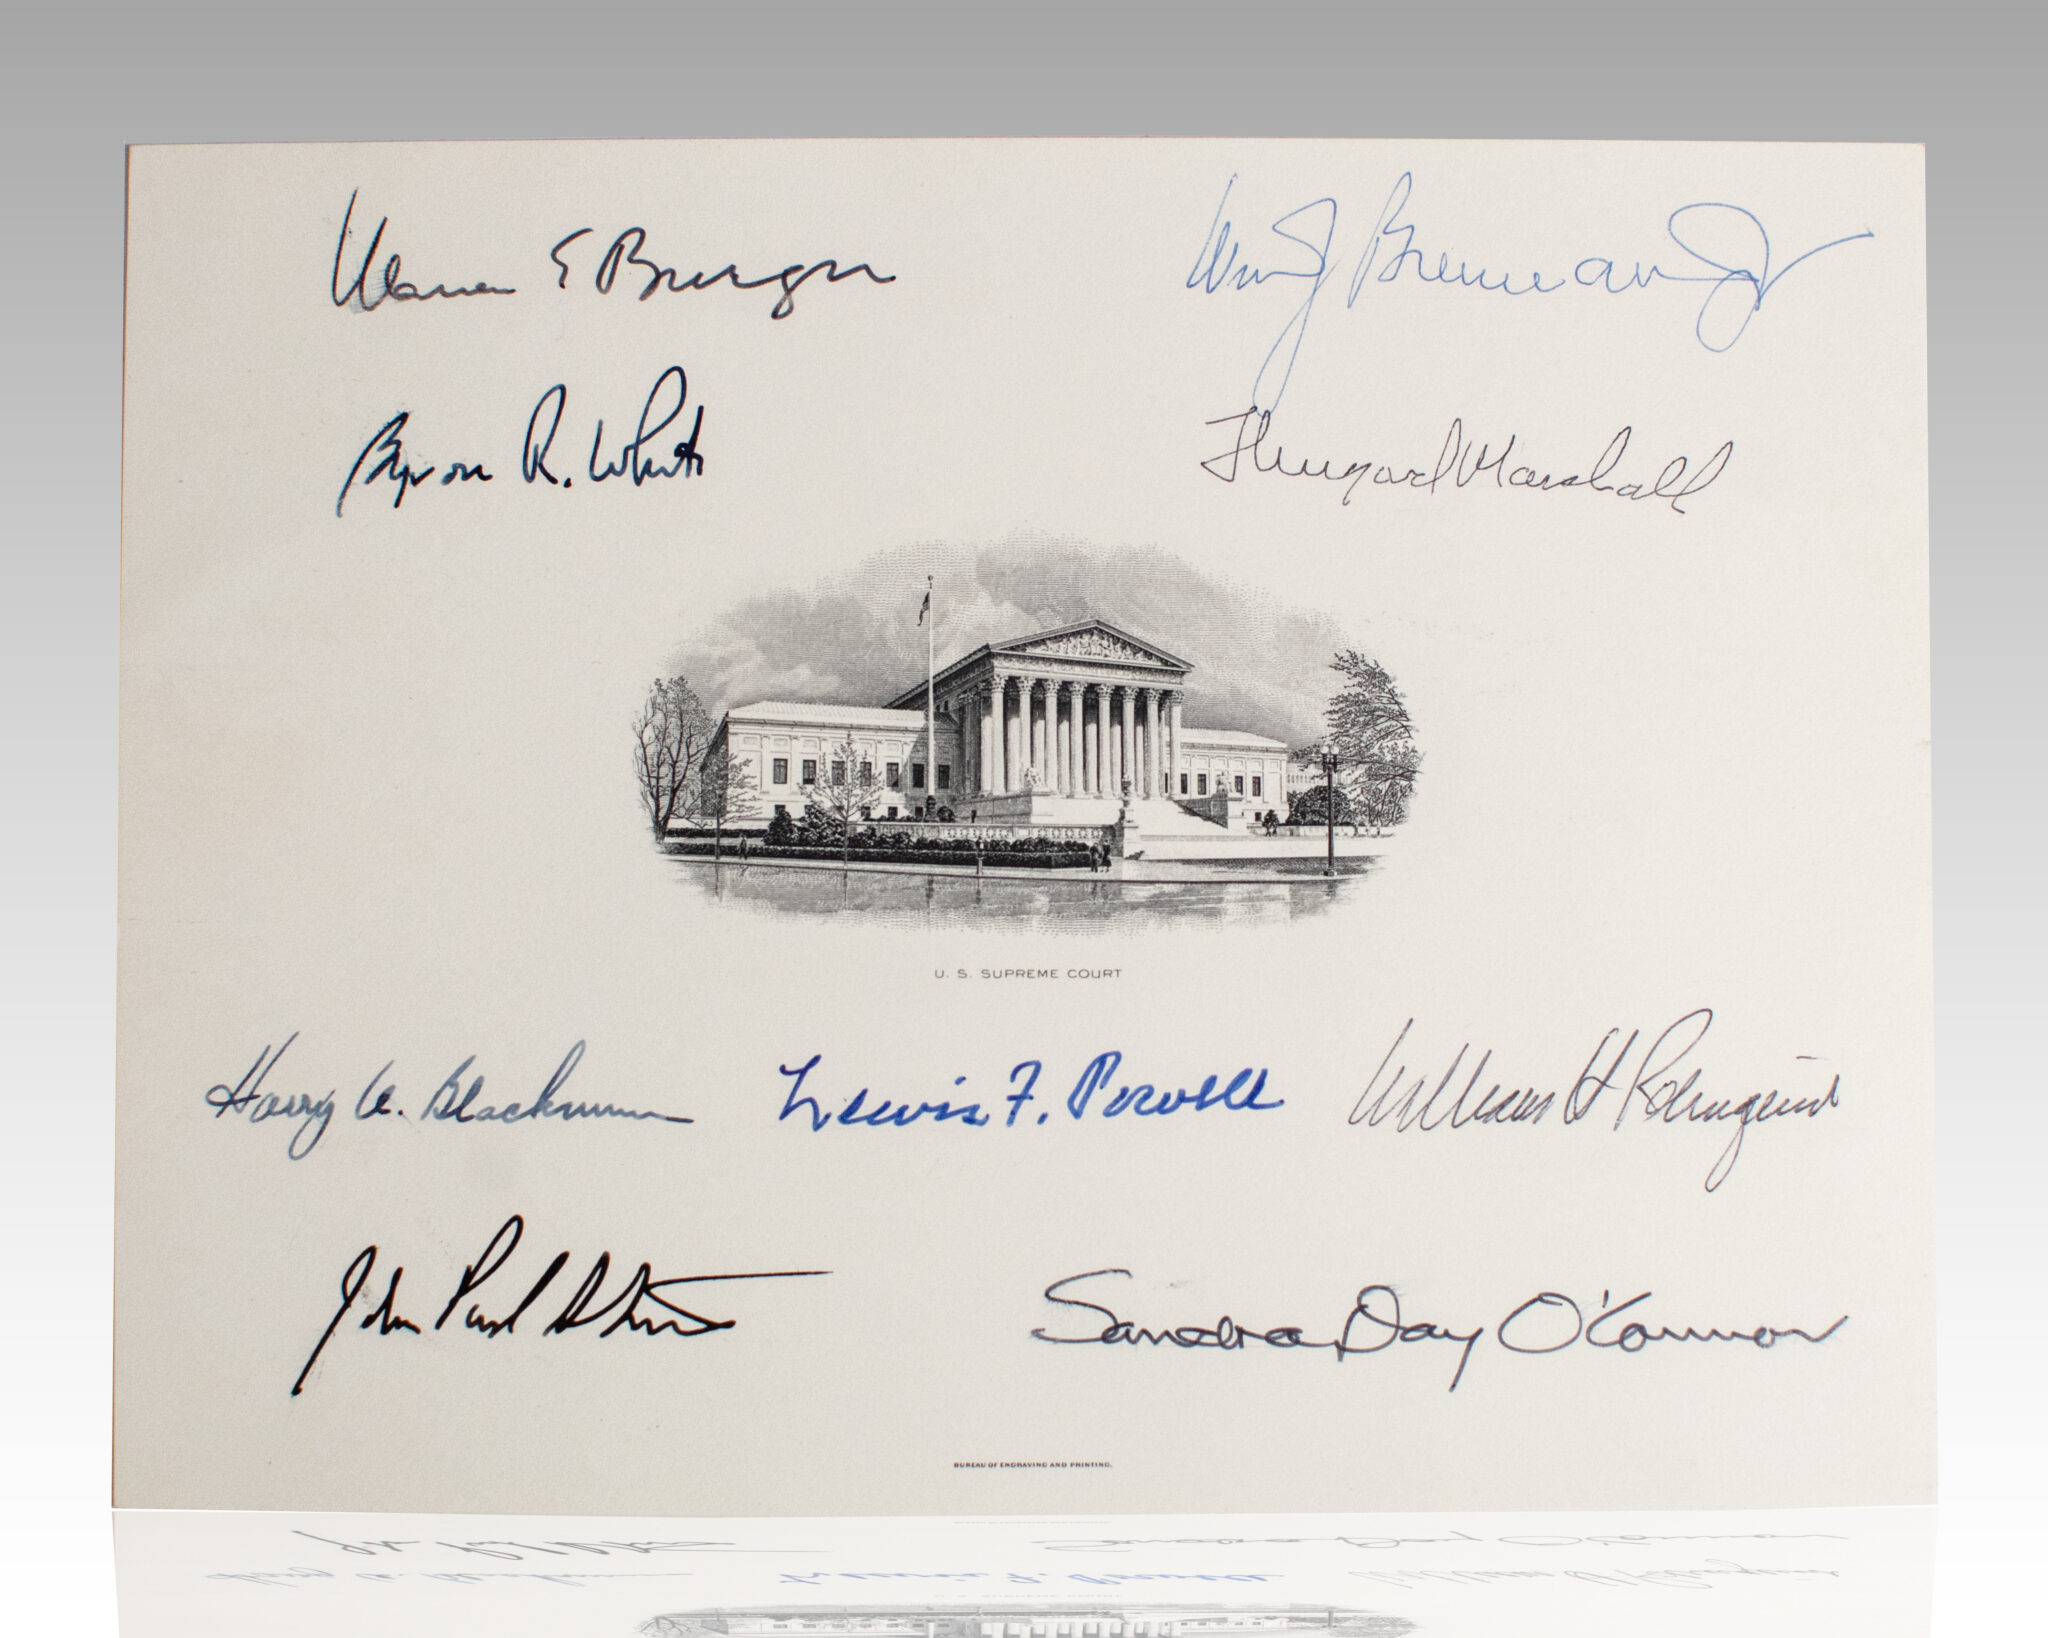 Warren E Burger
Wm J Brennan Jr
Byron R. White
Thurgood Marshall
U. S. SUPREME COURT
Harry A. Blackmun
Lewis F. Powell
William H Rehnquist
John Paul Stevens
Sandra Day O'Connor
BUREAU OF ENGRAVING AND PRINTING.